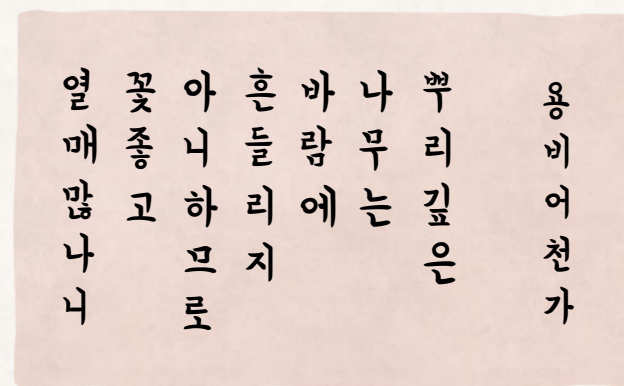 용비어천가
뿌리깊은
나무는
바람에
흔들리지
아니하므로
꽃좋고
열매많나니